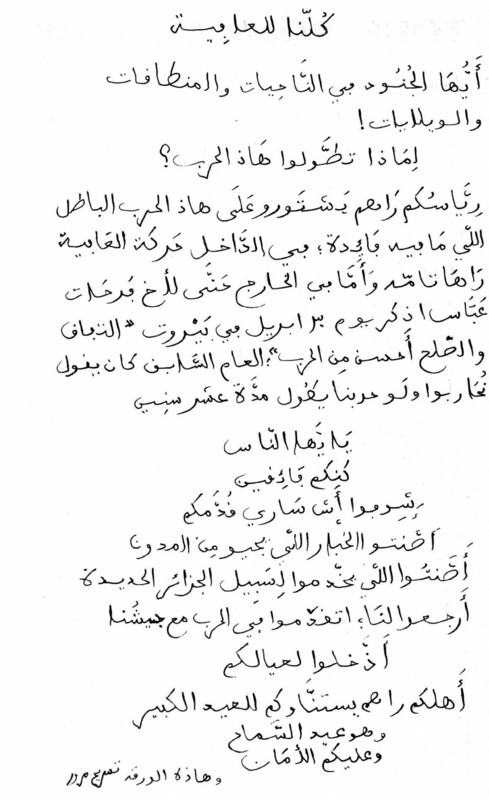 كُلّنا للعافِية
أَيُّهَا الجُنُود في النَّاحِيات والمنطافات
والويلايات!
لِمَاذا تطَّولوا هَاذ الحرب؟
رِيَّاسُكم رَاهم يَشتَورو عَلَى هاذ الحرب الباطل
اللّي مَا فيه فَائِدة، في الدَّاخل حَركَة العَافية
رَاهَا تامّه وَأَمَّا في الخارج حَتَّى للأخ فرحَات
عَبَّاس اذكر يوم ٣ ابريل في بَيْروت "التفاق
والصّلح أَحسن مِن الحرب"، العام السَّابق كان يقول
نُحَاربوا ولَو حربنا يطُول مدَّة عشر سنِين
يَا يّها النّاس
كُنكم فَائِقين
شِوفوا أَش سَاري قُدَّمكم
اَصَّنتو الخبار اللّي يجيو مِن المدون
أَصَّنتُوا اللّي يخدّموا لِسَبِيل الجزائر الجديدة
أَرجعوا لنَا، اتقدّموا في الحرب مع جيشُنا
أَدّخلوا لعيالكم
أَهلكم راهم يستنَّاوكم للعيد الكبير
وهو عيد السَّماح
وعليكم الأمَان
وهاذه الورقه تصريح مرور